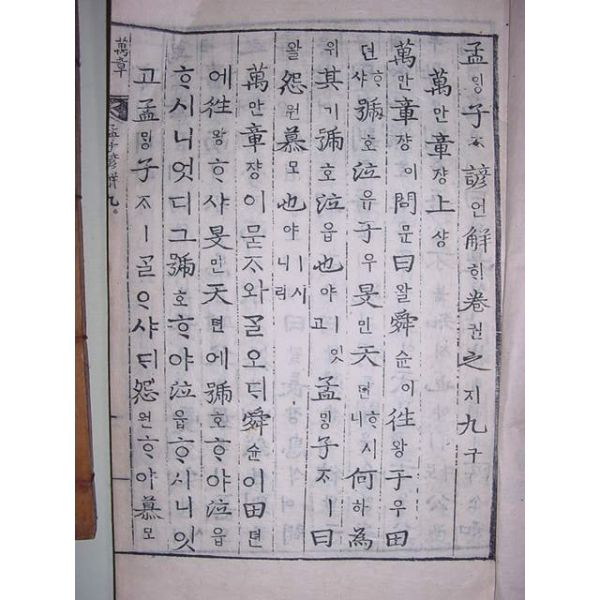 孟ᄆᆡᆼ子ᄌᆞ諺언解ᄒᆡ卷권之지九구
萬만章쟝上샹
萬만章쟝이問문曰왈舜슌이往왕于우田
뎐ᄒᆞ샤號호泣읍于우旻민天텬ᄒᆞ시니何하爲
위其기號호泣읍也야ㅣ잇고孟ᄆᆡᆼ子ᄌᆞㅣ曰
왈怨원慕모也야ㅣ시니라
萬만章쟝이묻ᄌᆞ와ᄀᆞᆯ오ᄃᆡ舜슌이田뎐
에往왕ᄒᆞ샤旻민天텬에號호ᄒᆞ야泣읍
ᄒᆞ시니엇디그號호ᄒᆞ야泣읍ᄒᆞ시니잇
고孟ᄆᆡᆼ子ᄌᆞㅣᄀᆞᆯᄋᆞ샤ᄃᆡ怨원ᄒᆞ야慕모
萬章 孟子諺解九